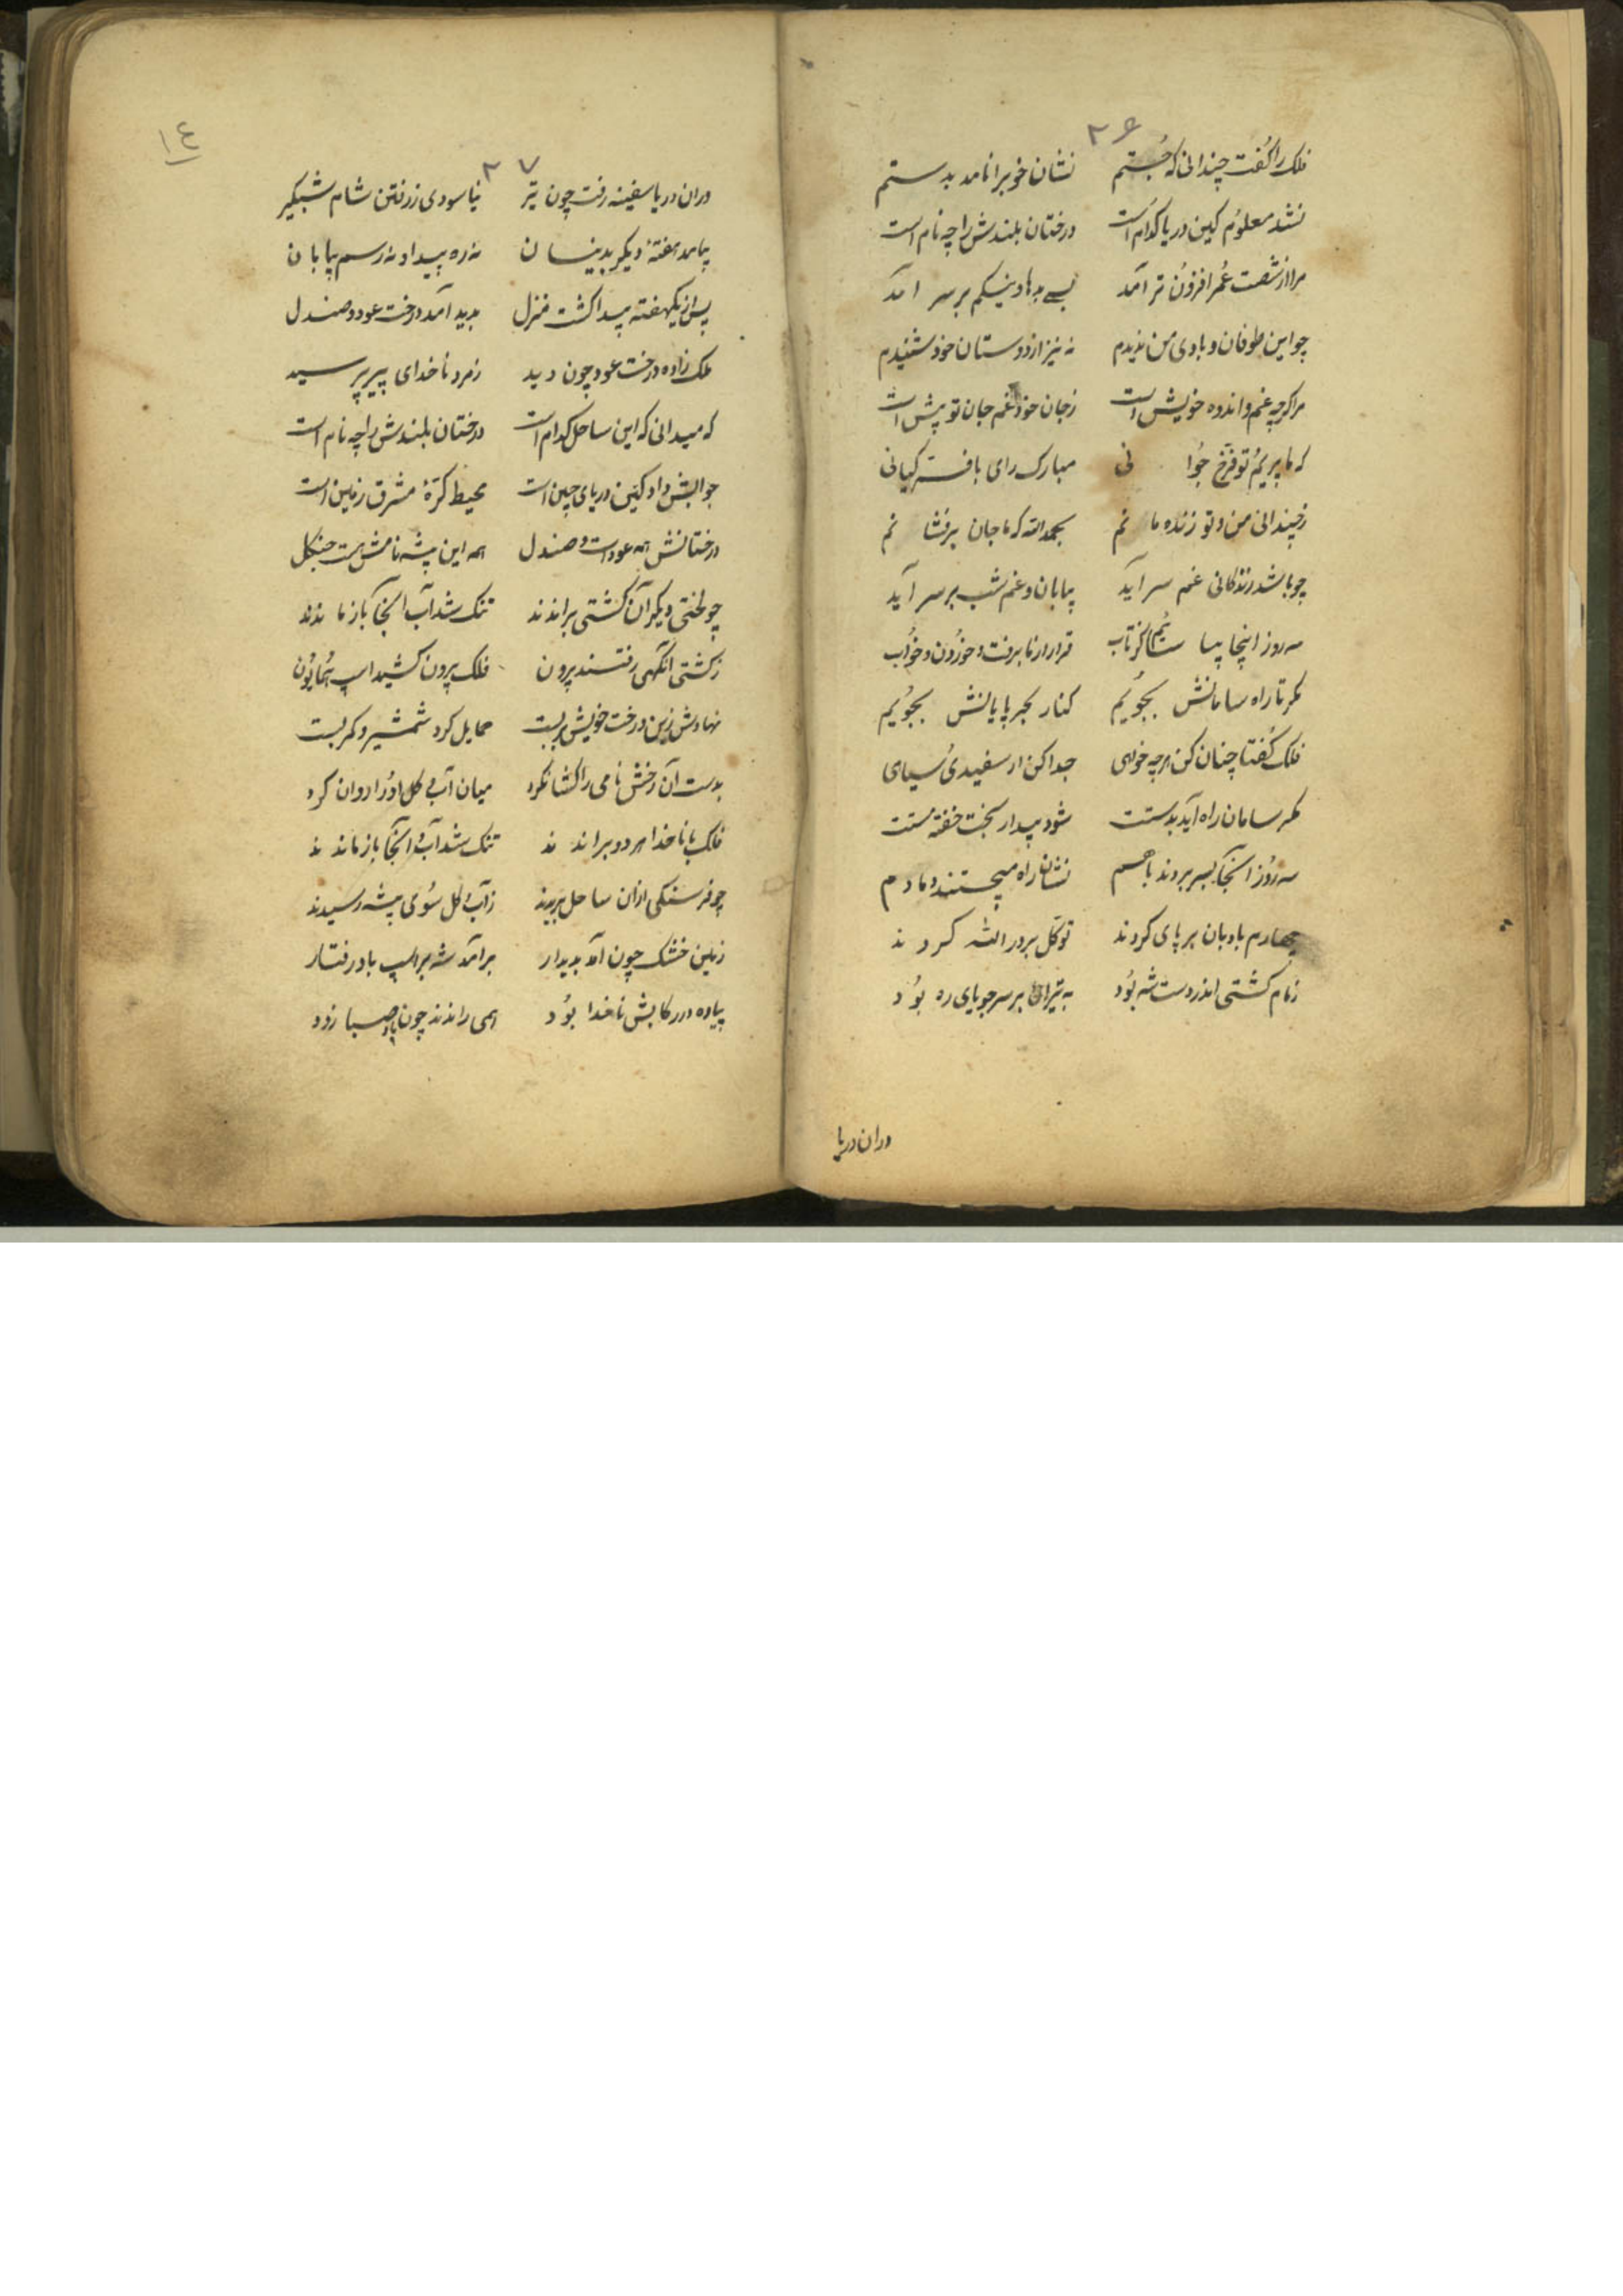 ۲۶
فلک را گفت چندانی که جستم نشان خوبرا نامد بدستم
نشد معلوم کین دریا کدام است درختان بلندش را چه نام است
مرا از شصت عمر افزون تر آمد بسی بدها و نیکم بر سر آمد
چو این طوفان و بادی من ندیدم نه نیز از دوستان خود شنیدم
مرا گرچه غم و اندوه خویش است ز جان خود غم جان تو پیش است
که ما پیریم تو فرخ جوانی مبارک رای با فر کیانی
ز چندانی من و تو زنده مانم بحمدالله که ما جان برفشانم
چو باشد زندگانی غم سر آید بیابان و غم شب بر سر آید
سه روز اینجا بیا کز تاب قرار از ما برفت و خوردن و خواب
مگر تا راه سامانش بجوئیم کنار بحر پایانش بجوئیم
فلک گفتا چنان کن هر چه خواهی جدا کن از سفیدی و سیاهی
مگر سامان راه آید بدستت شود بیدار بخت خفته مستت
سه روز آنجا بسر بردند با هم نشان راه میجستند دمادم
چهارم بادبان بر پای کردند توکل بر در الله کردند
زمام کشتی اندر دست شه بود بر سر جویای ره بود
دران دریا
۱٤
۲۷
دران دریا سفینه رفت چون تیر نیاسودی ز رفتن شام شبگیر
بیامد هفتهٔ دیگر بدینسان نه ره پیدا و نه رسم بیابان
پس از یکهفته پیدا گشت منزل بدید آمد درخت عود و صندل
ملک زاده درخت عود چون دید ز مرد ناخدای پیر پرسید
که میدانی که این ساحل کدام است درختان بلندش را چه نام است
جوابش داد کین دریای چین است محیط کرهٔ مشرق زمین است
درختانش همه عود است و صندل همه این بیشه نامش هست جنگل
چو لختی دیگر آن کشتی براندند تنک شد آب آنجا باز ماندند
ز کشتی آنگهی رفتند بیرون فلک بیرون کشید اسپ همایون
نهادش زین و رخت خویش بربست حمایل کرد شمشیر و کمر بست
بدست آن رخش نامی را کشان کرد میان آب و گل او را روان کرد
فلک با ناخدا هر دو براندند تنک شد آب و آنجا باز ماندند
چو فرسنگی ازان ساحل بریدند ز آب و گل سوی بیشه رسیدند
زمین خشک چون آمد پدیدار برآمد شه بر اسپ باد رفتار
پیاده در رکابش ناخدا بود همی راندند چون باد صبا زود